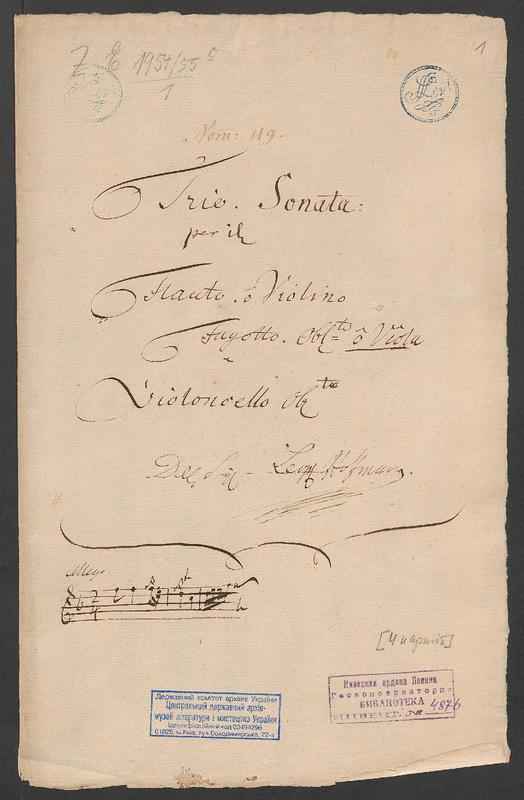 Z E 1957/55 c
1
1
Nom: 119.
Trio. Sonata:
per il
Flauto. ô Violino
Fagotto. Obl:to ô Viola
Violoncello Obl:to
Del Sig: Leop: Hoffmann.
Allegro
[4 партії]
Державний комітет архівів України
Центральний державний архів-
музей літератури і мистецтва України
Ідентифікаційний код 03494296
01025, м.Київ, вул.Володимирська, 22-а
Киевская ордена Ленина
Госконсерватория
БИБЛИОТЕКА
ИНВЕНТ. № 4876